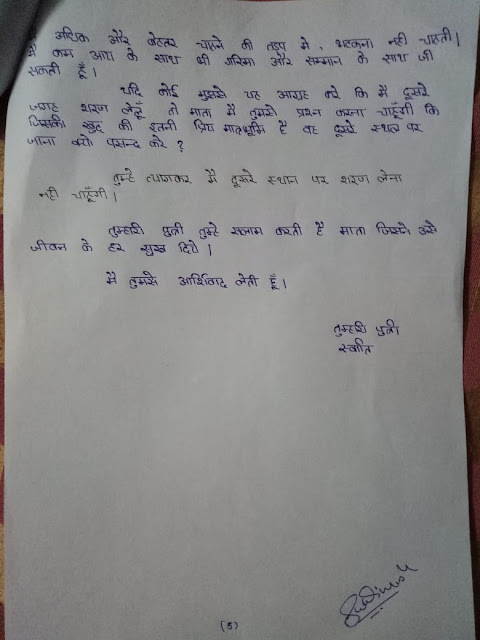 मै अधिक और बेहतर चाहने की तड़प मे, भटकना नही चाहती।
मै कम आय के साथ भी गरिमा और सम्मान के साथ जी
सकती हूँ।
यदि कोई मुझसे यह आग्रह करे कि मै दूसरे
जगह शरण लेलूँ तो माता मै तुमसे प्रश्न करना चाहूँगी कि
जिसकी खुद की इतनी प्रिय मातृभूमि है वह दूसरे स्थल पर
जाना क्यो पसन्द करे ?
तुम्हे त्यागकर मै दूसरे स्थान पर शरण लेना
नही चाहूँगी।
तुम्हारी पुत्री तुम्हे सलाम करती है माता जिसने उसे
जीवन के हर सुख दिये।
मै तुमसे आर्शिवाद लेती हूँ।
तुम्हारी पुत्री
स्वाति
(5)